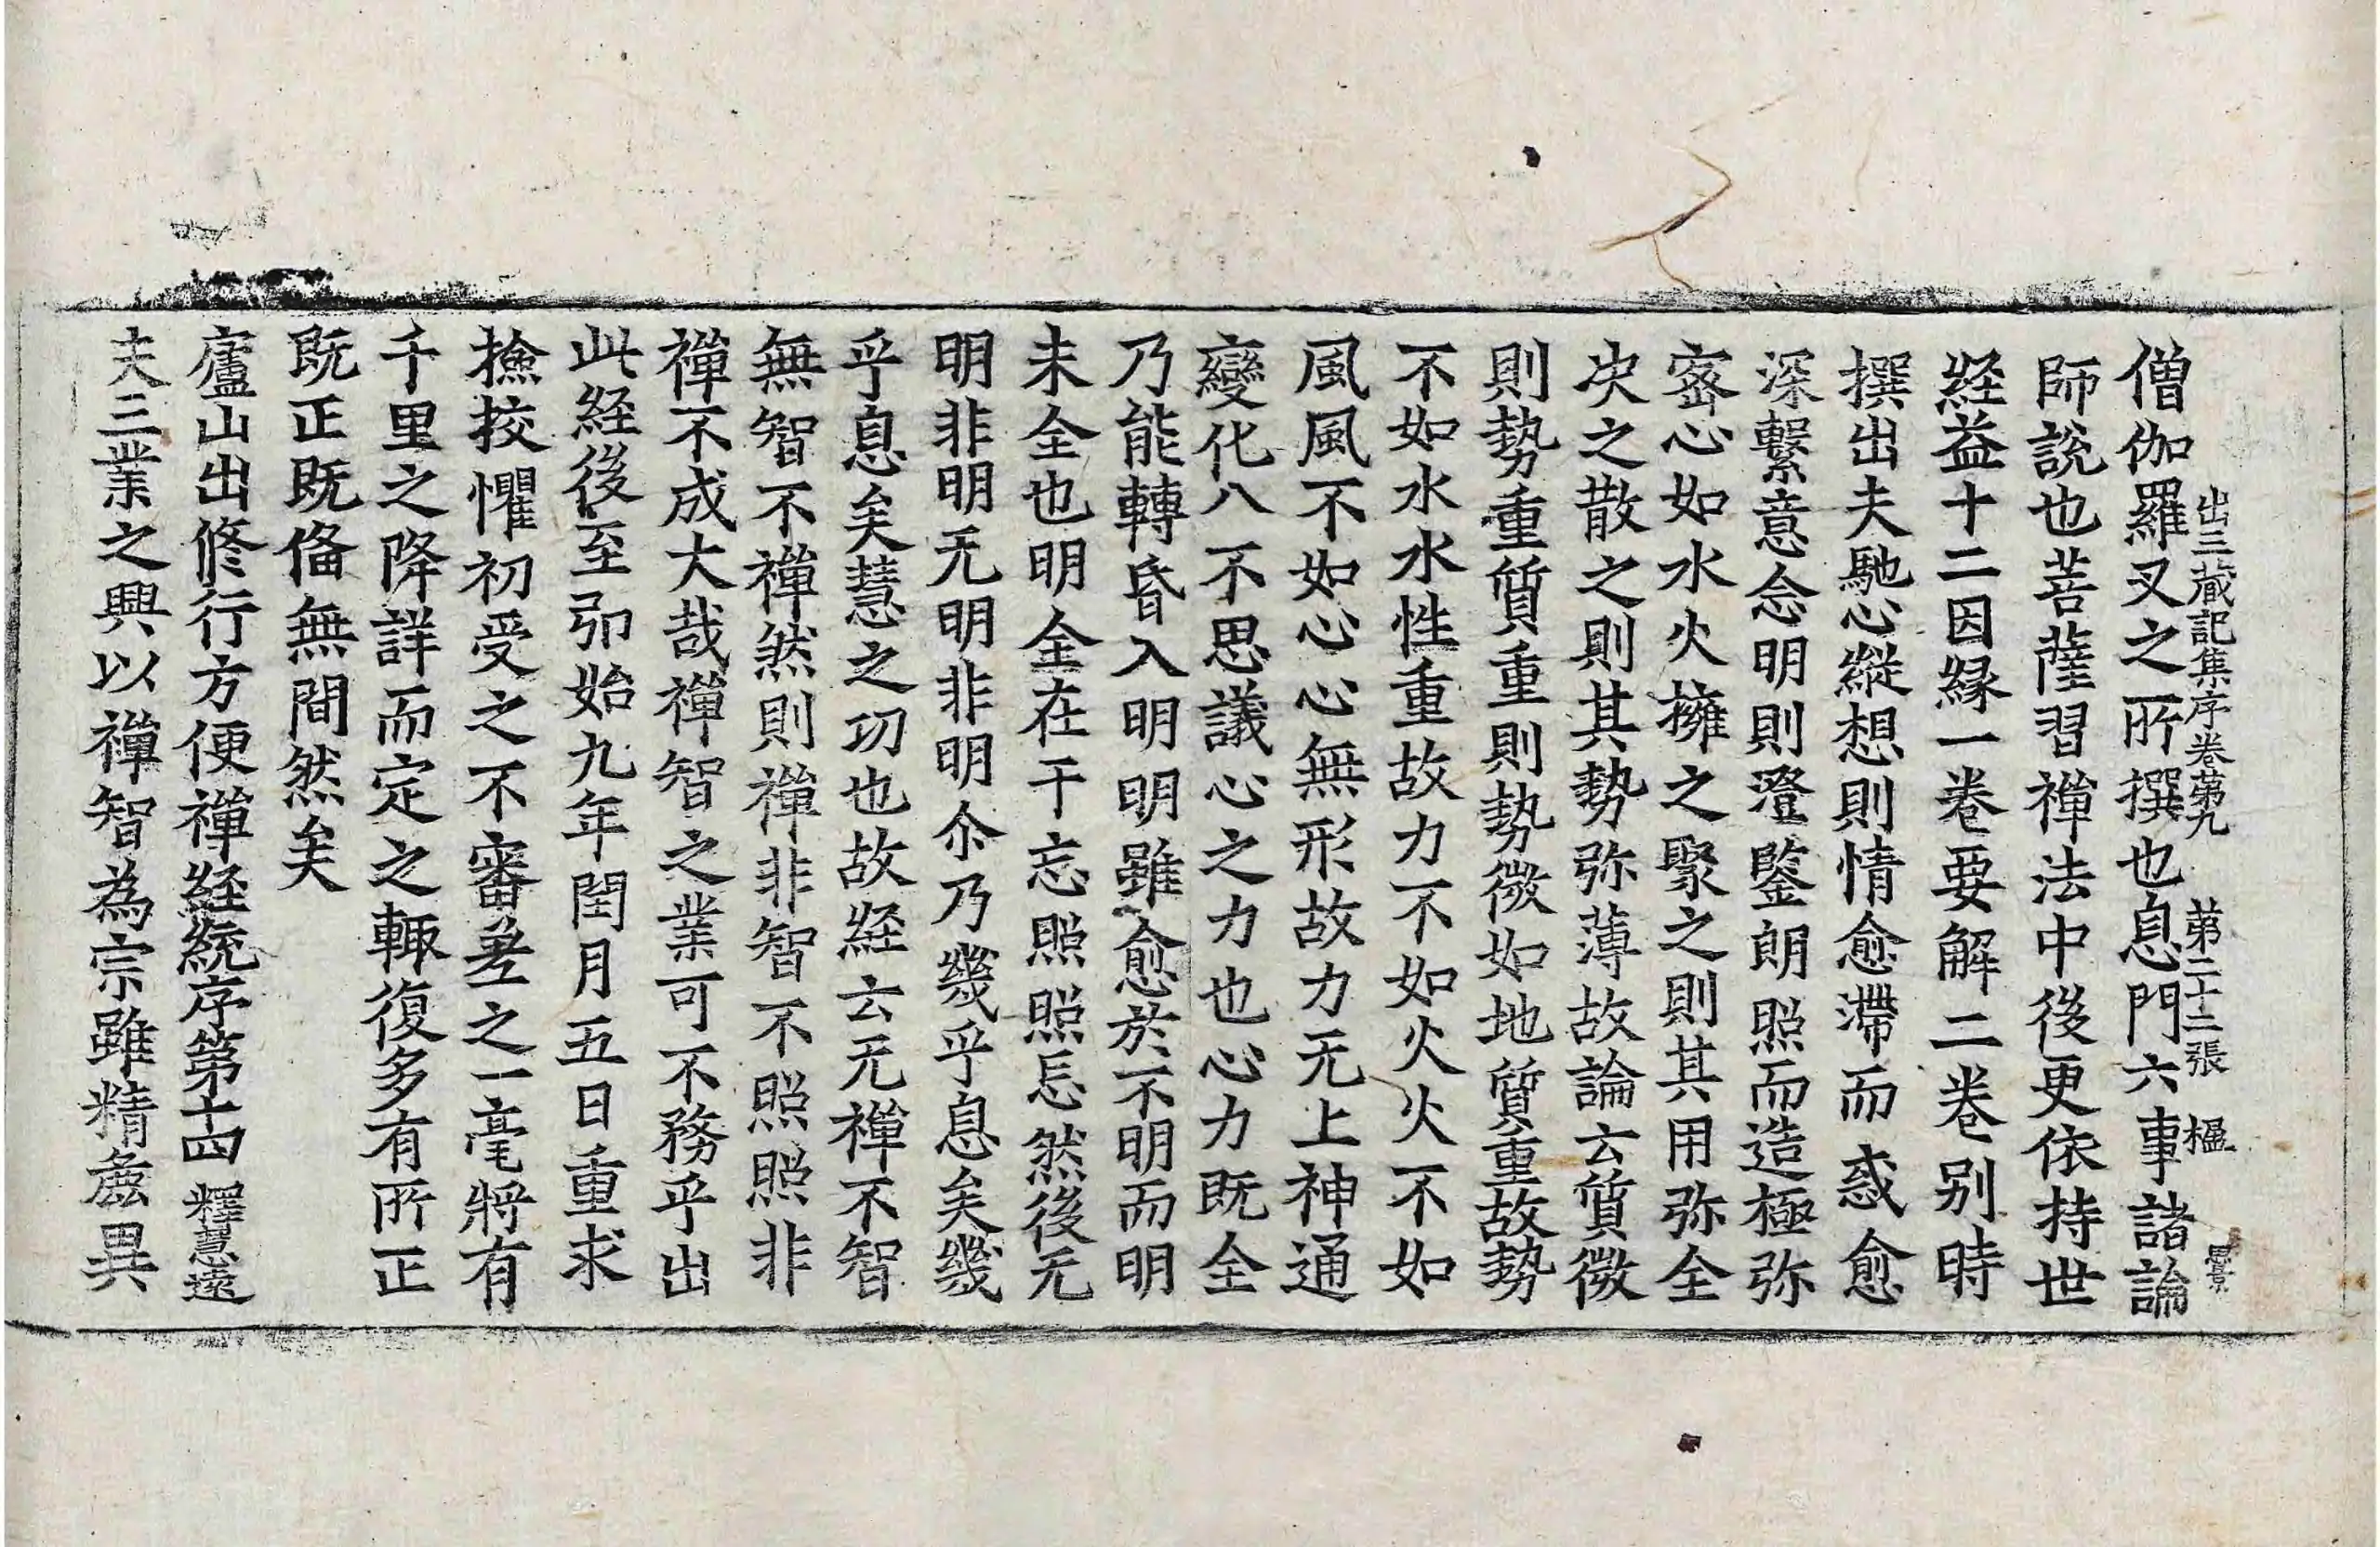 出三藏記集序卷第九　第二十二張　楹　曇
僧伽羅叉之所撰也息門六事諸論
師說也菩薩習禪法中後更依持世
経益十二因縁一卷要解二卷别時
撰出夫馳心縱想則情愈滯而惑愈
深繫意念明則澄鑒朗照而造極弥
宻心如水火擁之聚之則其用弥全
决之散之則其勢弥薄故論云質微
則勢重質重則勢微如地質重故勢
不如水水性重故力不如火火不如
風風不如心心無形故力无上神通
變化八不思議心之力也心力既全
乃能轉昏入明明雖愈於不明而明
未全也明全在于忘照照忘然後无
明非明无明非明尒乃幾乎息矣幾
乎息矣慧之功也故経云无禪不智
無智不禪然則禪非智不照照非
禪不成大哉禪智之業可不務乎出
此経後至弘始九年閏月五日重求
撿挍懼初受之不審差之一毫將有
千里之降詳而定之輙復多有所正
既正既俻無間然矣
廬山出修行方便禪経統序第十四　釋慧遠
夫三業之興以禪智為宗雖精麁異